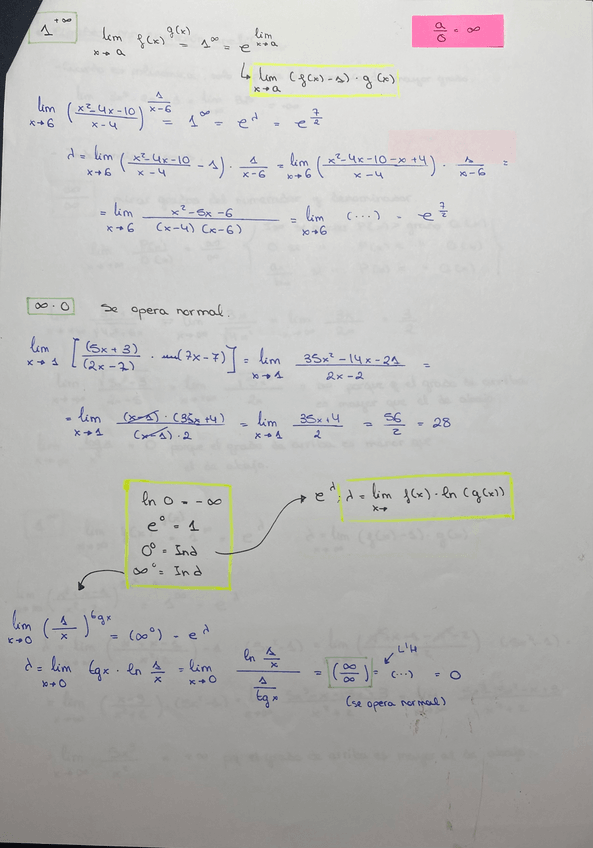 1^{+∞}
lim_{x→a} f(x)^{g(x)} = 1^∞ = e^{lim_{x→a}}
a/0 = ∞
↳ lim_{x→a} (f(x)-1) · g(x)
lim_{x→6} ((x²-4x-10)/(x-4))^{1/(x-6)} = 1^∞ = e^λ = e^{7/2}
λ = lim_{x→6} ((x²-4x-10)/(x-4) - 1) · 1/(x-6) = lim_{x→6} ((x²-4x-10-x+4)/(x-4)) · 1/(x-6) =
= lim_{x→6} (x²-5x-6)/((x-4)(x-6)) = lim_{x→6} (...) = e^{7/2}
∞·0 Se opera normal.
lim_{x→1} [(5x+3)/(2x-2) · (7x-7)] = lim_{x→1} (35x²-14x-21)/(2x-2) =
= lim_{x→1} ((x-1)·(35x+4))/((x-1)·2) = lim_{x→1} (35x+4)/2 = 56/2 = 28
ln 0 = -∞
e⁰ = 1
0⁰ = Ind
∞⁰ = Ind
e^λ; λ = lim_{x→} f(x)·ln(g(x))
lim_{x→0} (1/x)^{tgx} = (∞⁰) - e^λ
λ = lim_{x→0} tgx · ln 1/x = lim_{x→0} (ln 1/x)/(1/tgx) = (∞/∞) = (...) = 0
L'H
(se opera normal)